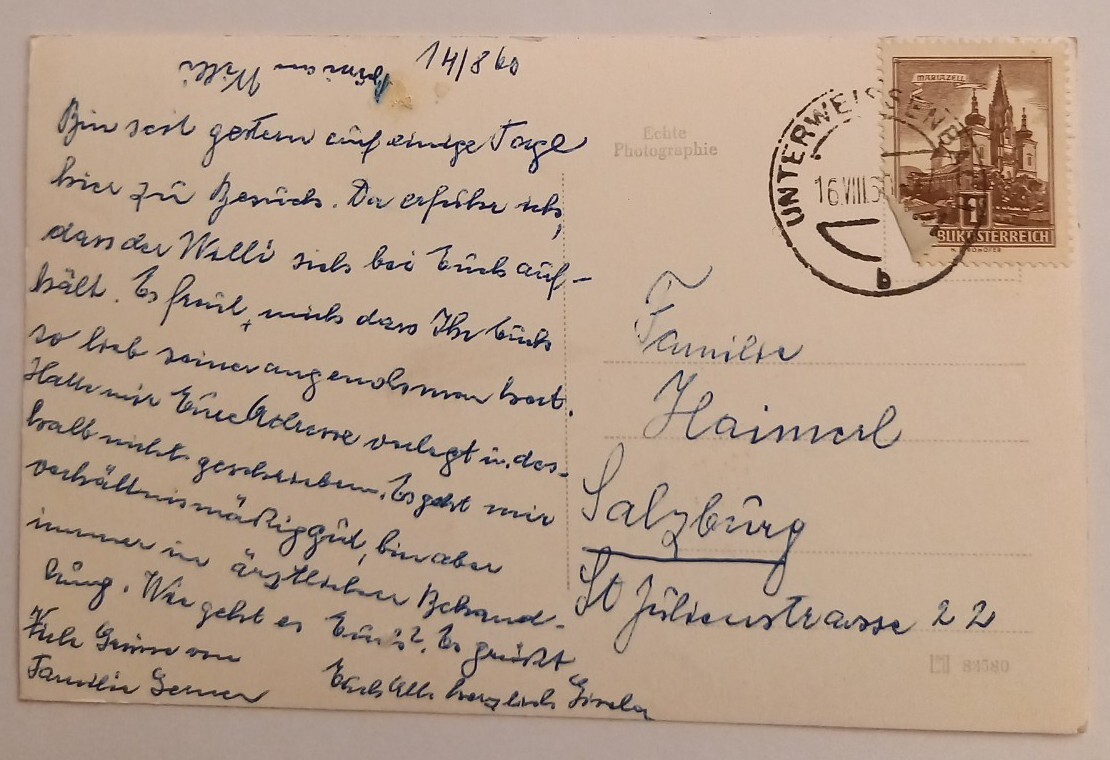 14/8 60
Bin seit gestern auf einige Tage
hier zu Besuch. Da erfuhr ich,
dass der Willi sich bei Euch auf-
hält. Es freut mich dass Ihr Euch
so lieb seiner angenohmen habt.
Hatte mir Eure Adresse verlegt u. des-
halb nicht geschrieben. Es geht mir
verhältnismäßig gut, bin aber
immer in ärztlicher Behand-
lung. Wie geht es Euch? Es grüßt
Euch Alle herzlich Gisela
Viele Grüsse von
Familie
Willi
Echte
Photographie
UNTERWEISSENBACH
16.VIII.60
b
MARIAZELL
BLIK ÖSTERREICH
Familie
Haimerl
Salzburg
St Julienstrasse 22
83580